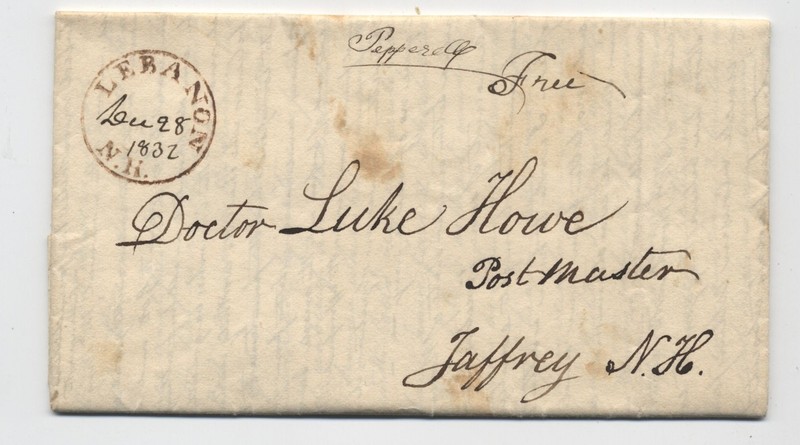 Pepperell
Free
LEBANON
Dec 28
1832
N.H.
Doctor Luke Howe
Post Master
Jaffrey N.H.